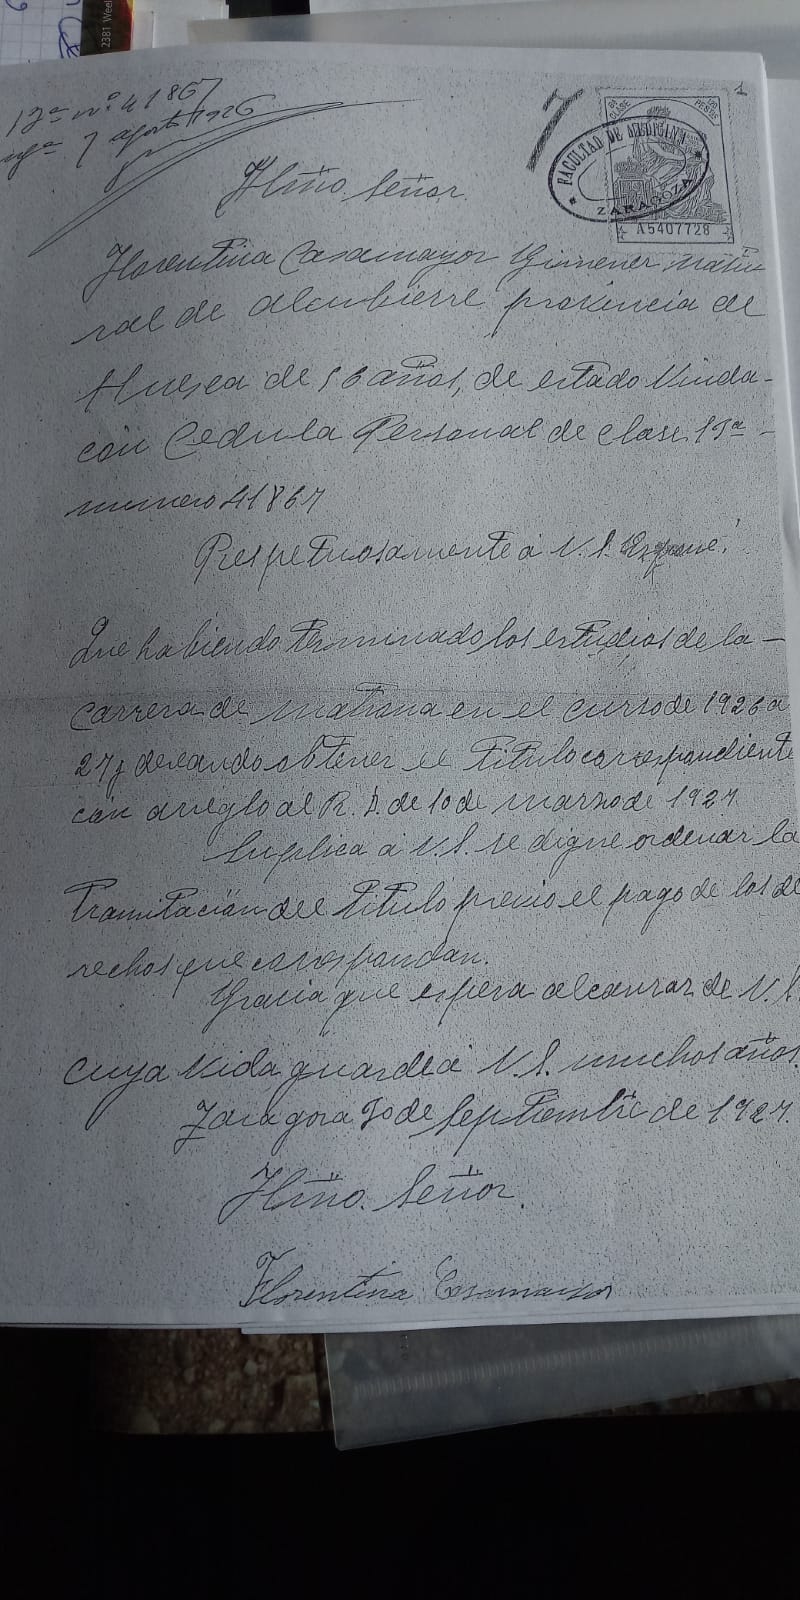 2381 Week
13ª nº 41867
7 agosto 1926
1
7
8ª CLASE
120 PESETAS
FACULTAD DE MEDICINA
ZARAGOZA
A5407728
Ilmo. Señor
Florentina Casamayor Gimenez natu
ral de Alcubierre provincia de
Huesca de 56 años, de estado Viuda-
con Cedula Personal de clase 13ª-
numero 41867
Respetuosamente á V.S. Expone:
Que habiendo terminado los estudios de la-
carrera de Matrona en el curso de 1926 a
27 y deseando obtener el titulo correspondiente
con arreglo al R. D. de 10 de marzo de 1927
Suplica a V.S. se digne ordenar la
Tramitación del titulo previo el pago de los de
rechos que correspondan.
Gracia que espera alcanzar de V.S.
cuya vida guarde á V.S. muchos años.
Zaragoza 30 de Septiembre de 1927.
Ilmo. Señor.
Florentina Casamayor